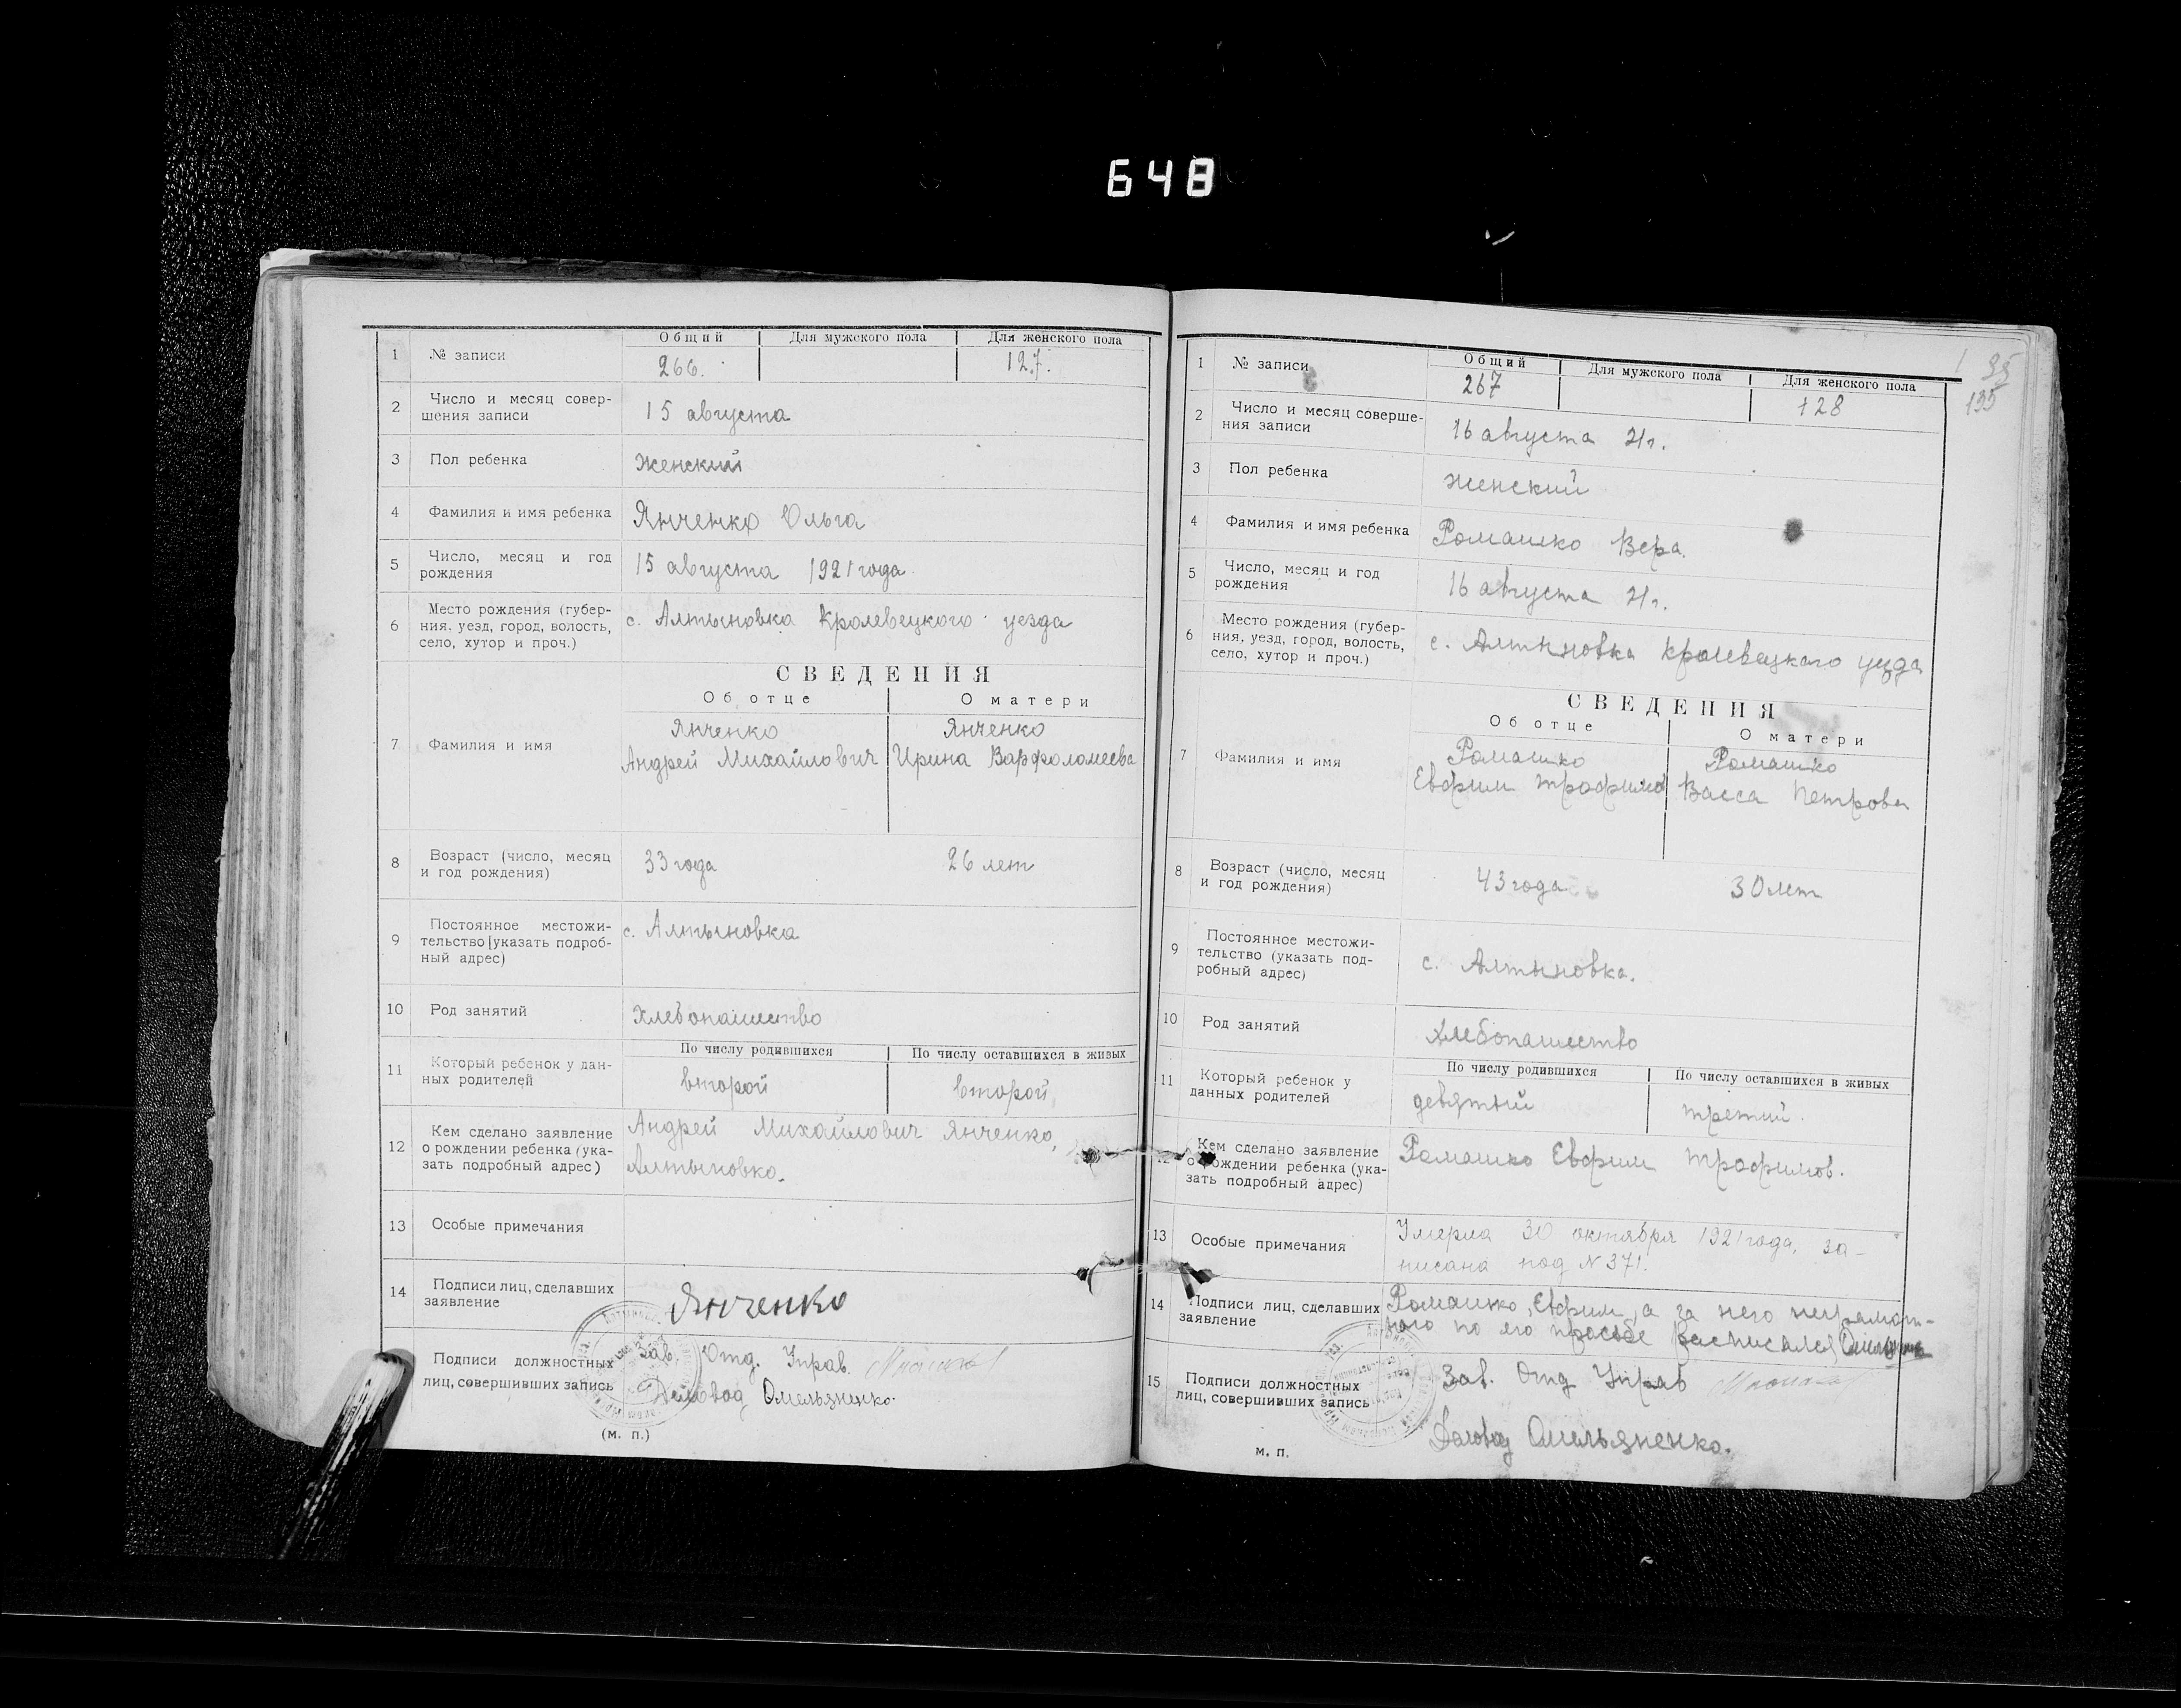 648
1 № записи
Общий Для мужского пола Для женского пола
266. 127.
2 Число и месяц совер-
шения записи
15 августа
3 Пол ребенка женский
4 Фамилия и имя ребенка Янченко Ольга
5 Число, месяц и год
рождения
15 августа 1921 года.
6 Место рождения (губер-
ния, уезд, город, волость,
село, хутор и проч.)
с. Алтыновка Кролевецкого уезда
СВЕДЕНИЯ
Об отце О матери
7 Фамилия и имя
Янченко Янченко
Андрей Михайлович Ирина Варфоломеева
8 Возраст (число, месяц
и год рождения)
33 года 26 лет
9 Постоянное местожи-
тельство [указать подроб-
ный адрес)
с. Алтыновка
10 Род занятий хлебопашество
11 Который ребенок у дан-
ных родителей
По числу родившихся По числу оставшихся в живых
второй второй
12 Кем сделано заявление
о рождении ребенка (ука-
зать подробный адрес)
Андрей Михайлович Янченко,
Алтыновка.
13 Особые примечания
14 Подписи лиц, сделавших
заявление
Янченко
Подписи должностных
лиц, совершивших запись
Зав. Отд. Управ.
Деловод Омельяненко.
(м. п.)
35
135
1 № записи
Общий Для мужского пола Для женского пола
267 128
2 Число и месяц соверше-
ния записи
16 августа 21 г.
3 Пол ребенка женский
4 Фамилия и имя ребенка Ромашко Вера.
5 Число, месяц и год
рождения
16 августа 21 г.
6 Место рождения (губер-
ния, уезд, город, волость,
село, хутор и проч.)
с. Алтыновка Кролевецкого уезда
СВЕДЕНИЯ
Об отце О матери
7 Фамилия и имя
Ромашко Ромашко
Евфим Трофимов Васса Петрова
8 Возраст (число, месяц
и год рождения)
43 года 30 лет
9 Постоянное местожи-
тельство (указать под-
робный адрес)
с. Алтыновка.
10 Род занятий хлебопашество
11 Который ребенок у
данных родителей
По числу родившихся По числу оставшихся в живых
девятый третий.
12 Кем сделано заявление
о рождении ребенка (ука-
зать подробный адрес)
Ромашко Евфим Трофимов.
13 Особые примечания
Умерла 30 октября 1921 года, за-
писана под № 371.
14 Подписи лиц, сделавших
заявление
Ромашко, Евфим, а за него неграмот-
ного по его просьбе расписался
15 Подписи должностных
лиц, совершивших запись
Зав. Отд Управ
Деловод Омельяненко.
м. п.